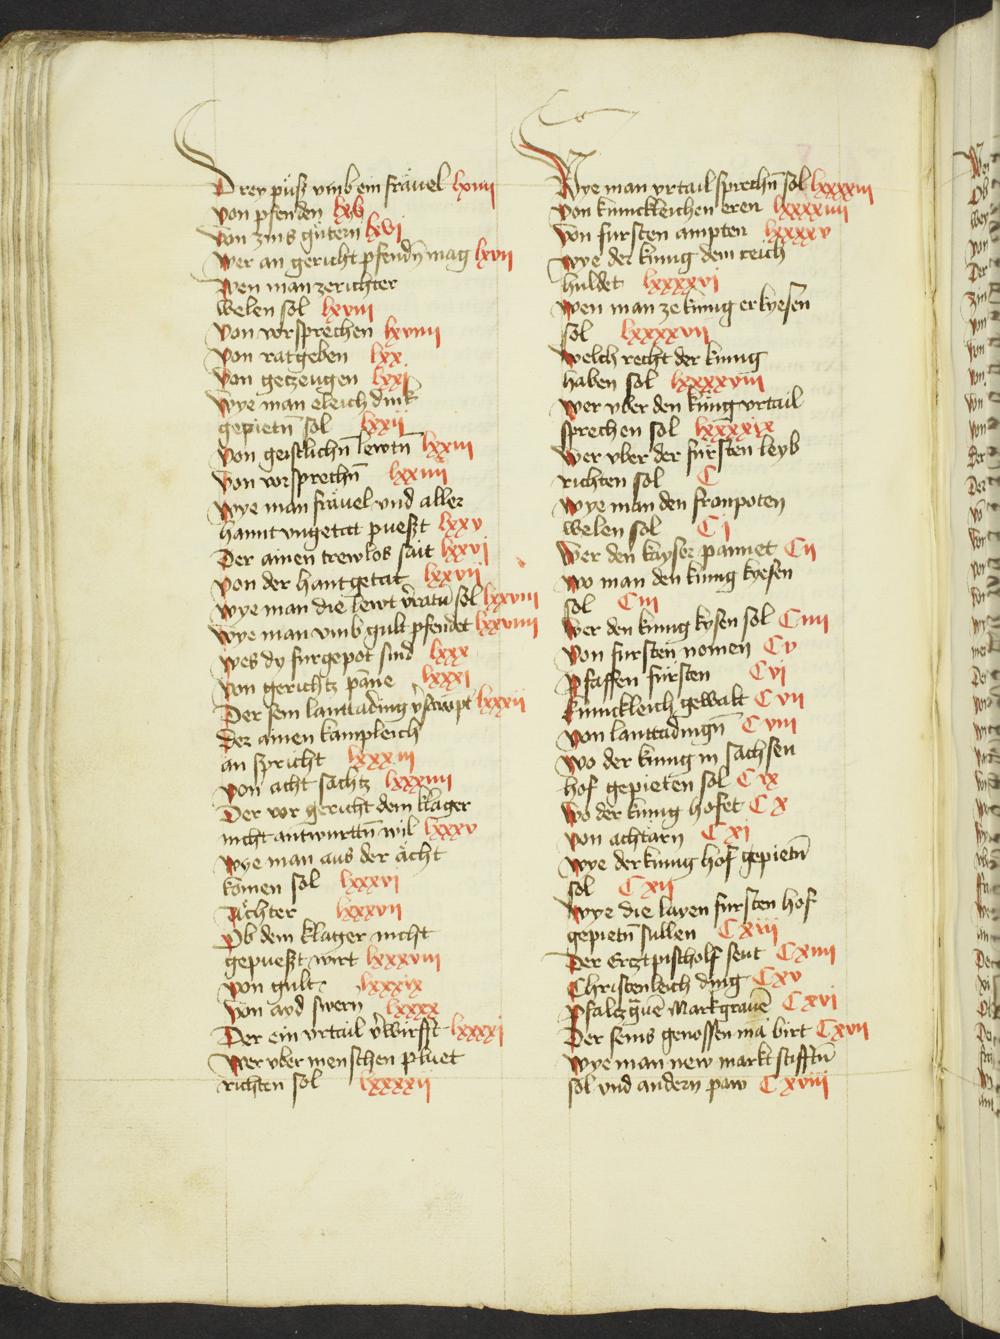 Drey püsz vmb ein fräuel lxiiii
Von pfenden lxv
Von zins gütern lxvi
Wer an gericht pfendn̄ mag lxvii
Wen man ze richter
welen sol lxviii
Von vorsprechen lxviiii
Von ratgeben lxx
Von getzeugen lxxi
Wye man eleich dink
gepietn̄ sol lxxii
Von geistlichn̄ lewtn̄ lxxiii
Von vorsprechn̄ lxxiiii
Wye man fräuel vnd aller
hannt vngetat pueszt lxxv
Der ainen trewlos sait lxxvi
Von der hantgetat lxxvii
Wye man die lewt v̓ratn̄ sol lxxviii
Wye man vmb gult pfendet lxxviiii
Wes dy furgepot sind lxxx
Von gerichtz pāne lxxxi
Der sein lanttading lxxxii
Der ainen kampleich
an spricht lxxxiii
Von acht sachtz lxxxiiii
Der vor gericht dem klager
nicht antwurttn̄ wil lxxxv
Wye man aus der ächt
komen sol lxxxvi
Ächter lxxxvii
Ob dem klager nicht
gepueszt wirt lxxxviii
Von gult lxxxix
Von ayd swern lxxxx
Der ein vrtail v̓wirfft lxxxxi
Wer vber menschen pluet
richten sol lxxxxii
Wye man vrtail sprechn̄ sol lxxxxiii
Von kunickleichen eren lxxxxiiii
Von fursten ampten lxxxxv
Wye der kunig dem reich
huldet lxxxxvi
Wen man ze kunig erkyesen
sol lxxxxvii
Welch recht der kunig
haben sol lxxxxviii
Wer vber den künig vrtail
sprechen sol lxxxxix
Wer vber der fürsten leyb
richten sol C
Wye man den fronpoten
welen sol Ci
Wer den kayser pannet Cii
Wo man den kunig kyesen
sol Ciii
Wer den kunig kysen sol Ciiii
Von fursten nomen Cv
Pfaffen fürsten Cvi
Kunickleich gewalt Cvii
Von lanttadingn̄ Cviii
Wo der kunig in sachsen
hof gepieten sol Cix
Wo der kunig hofet Cx
Von achtärn Cxi
Wye der kunig hof gepietn̄
sol Cxii
Wye die layen fursten hof
gepietn̄ sullen Cxiii
Der Ertzpischolf sent Cxiiii
Christenleich ding Cxv
Pfaltzgrauē Markgrauē Cxvi
Der seins genossen nīa birt Cxvii
Wye man new markt stifftn̄
sol vnd andern paw Cxviii